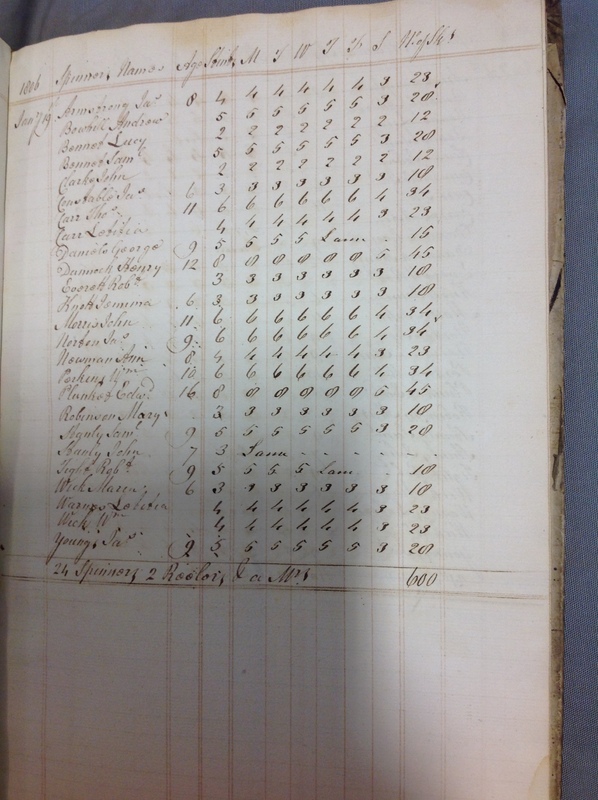 1806 Spinners Names Age Stint M T W T F S No of Sks
Jany 19th Armstrong Jas 8 4 4 4 4 4 4 3 23
Bowhill Andrew 5 5 5 5 5 5 3 28
Bennet Lucy 2 2 2 2 2 2 2 12
Bennet Saml 5 5 5 5 5 5 3 28
Clarke John 2 2 2 2 2 2 2 12
Constable Jas 6 3 3 3 3 3 3 3 18
Carr Thos 11 6 6 6 6 6 6 4 34
Carr Lætitia 4 4 4 4 4 4 3 23
Daniels George 9 5 5 5 5 Lame - 15
Henry 12 8 8 8 8 8 8 5 45
Everett Robt 3 3 3 3 3 3 3 18
Jemima 6 3 3 3 3 3 3 3 18
Morris John 11 6 6 6 6 6 6 4 34
Norten Jas 9 6 6 6 6 6 6 4 34
Newman Ann 8 4 4 4 4 4 4 3 23
Perkins Wm 10 6 6 6 6 6 6 4 34
Plunket Edwd 16 8 8 8 8 8 8 5 45
Robinson Mary 3 3 3 3 3 3 3 18
Stanly Saml 9 5 5 5 5 5 5 3 28
Stanly John 7 3 Lame - - - - -
Tight Robt 9 5 5 5 5 Lame - 18
Wick Maria 6 3 3 3 3 3 3 3 18
Warnes Lætitia 4 4 4 4 4 4 3 23
Wick Wm 4 4 4 4 4 4 3 23
Youngs Jas 9 5 5 5 5 5 5 3 28
24 Spinners 2 Reelers & a Mrs 600